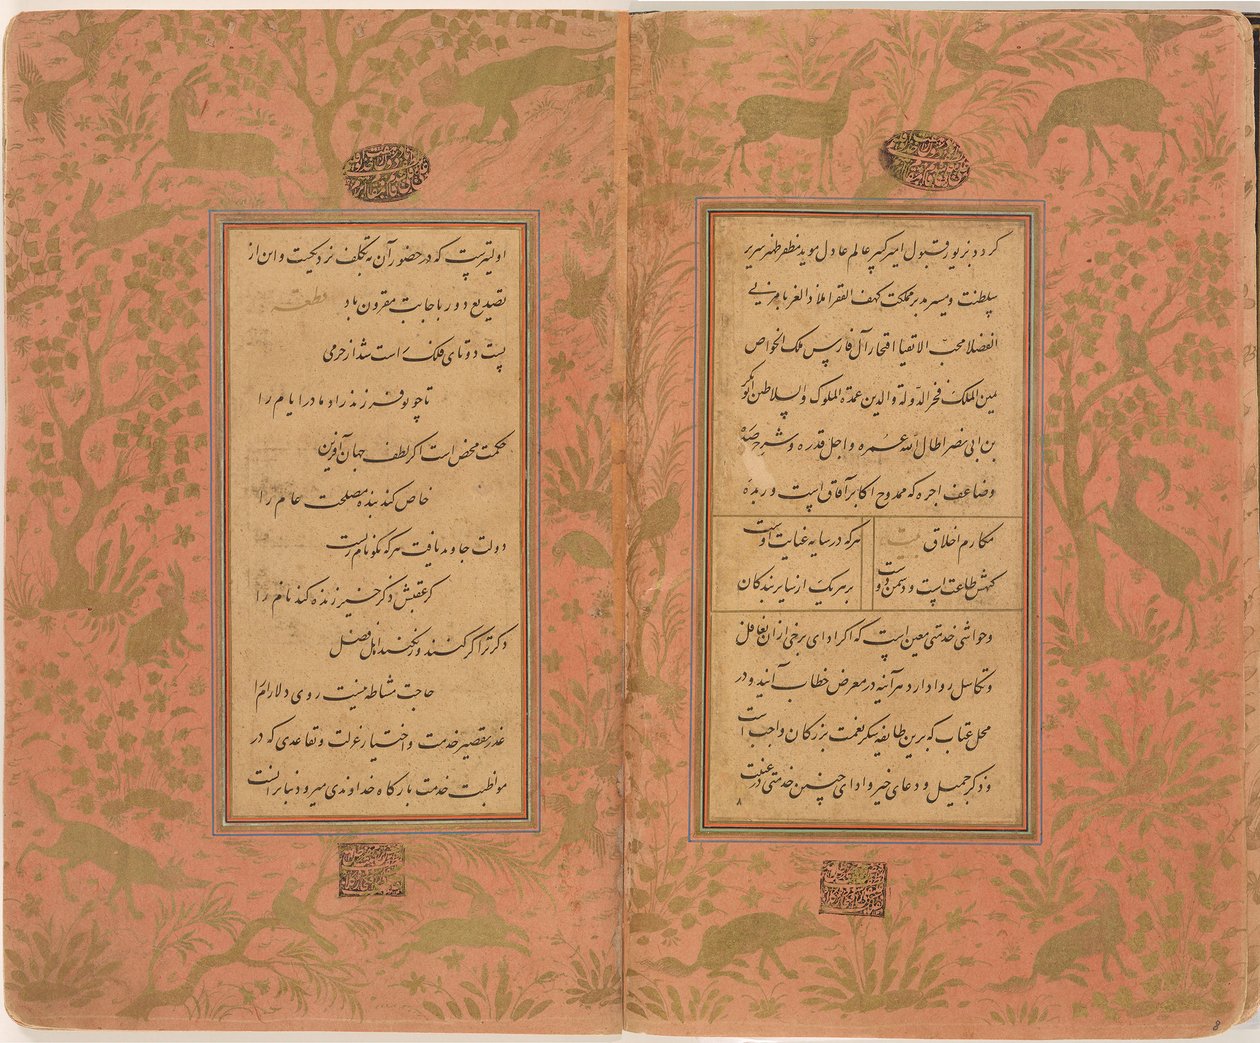 گردد بزیور قبول امیر کبیر عالم عادل موید مظفر ظهیر سریر
سلطنت و مشیر تدبیر مملکت کهف الفقرا ملاذ الغربا مربی
الفضلا محب الاتقیا افتخار آل فارس ملک الخواص
یمین الملک فخر الدوله والدین عمدة الملوک والسلاطین ابوبکر
بن ابی نصر اطال الله عمره و اجل قدره و شرح صدره
وضاعف اجره که ممدوح اکابر آفاق است و
مکارم اخلاق بیت هرکه در سایه عنایت اوست
کنهش طاعت است و دشمن دوست بر هر یک از سایر بندکان
و حواشی خدمتی معین است که اکر ادای برخی از ان تغافل
و تکاسل روا دارد هر آینه در معرض خطاب آیند و در
محل عتاب که برین طایفه شکر نعمت بزرکان واجب است
و ذکر جمیل و دعای خیر و ادای چنین خدمتی در غیبت
۸
اولیترست که در حضور آن بتکلف نزدیکست و این از
تصنع دور باجابت مقرون باد قطعه
پشت دوتای فلک راست شد از خرمی
تا چو تو فرزند زاد مادر ایام را
حکمت محض است اکر لطف جهان آفرین
خاص کند بنده مصلحت عام را
دولت جاوید یافت هر که نکونام زیست
کز عقبش ذکر خیر زنده کند نام را
ذکر ترا کر کنند ور نکنند اهل فضل
حاجت مشاطه نیست روی دلارام را
عذر تقصیر خدمت و اختیار عزلت و تقاعدی که در
مواظبت خدمت بارکاه خداوندی میرود بنا بر آنست
8